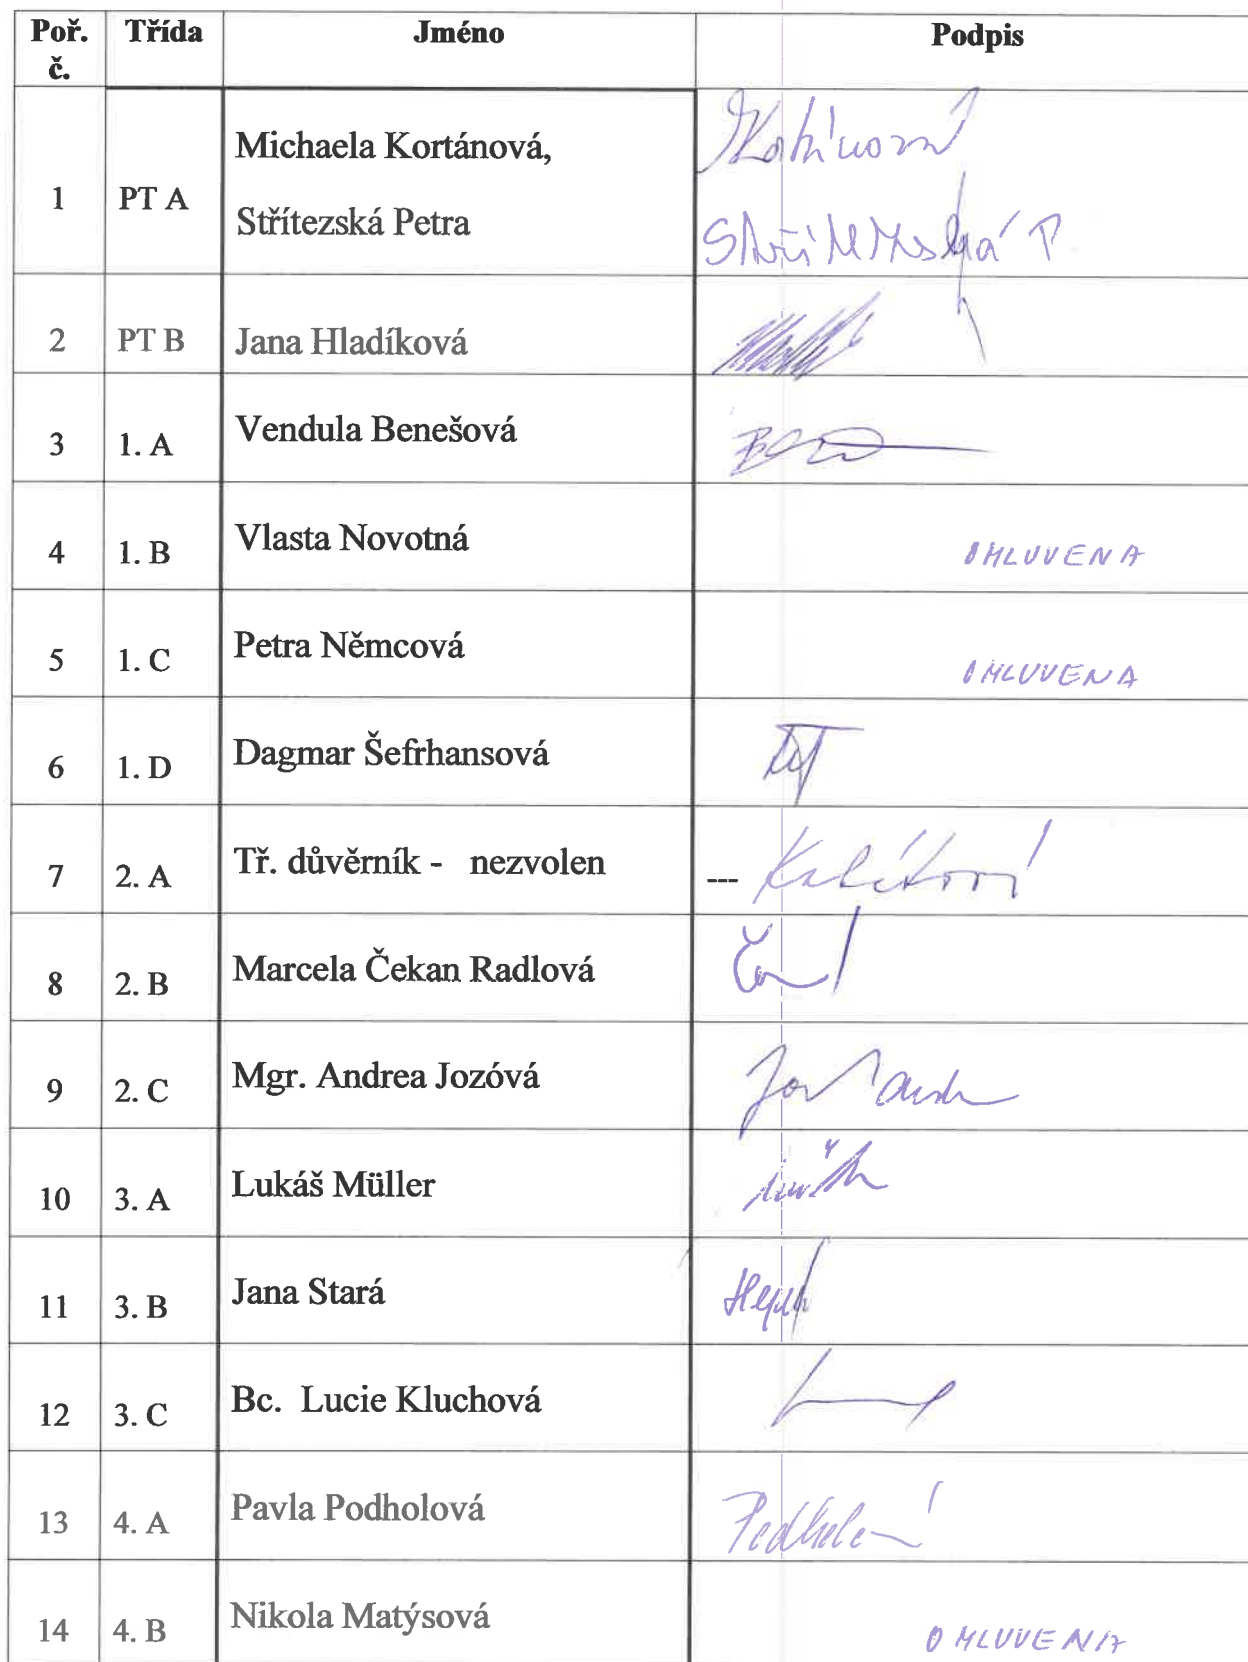 Poř. č. Třída Jméno Podpis
1 PT A Michaela Kortánová,
Střítezská Petra Střítezská P.
2 PT B Jana Hladíková
3 1. A Vendula Benešová
4 1. B Vlasta Novotná OMLUVENA
5 1. C Petra Němcová OMLUVENA
6 1. D Dagmar Šefrhansová
7 2. A Tř. důvěrník - nezvolen ---
8 2. B Marcela Čekan Radlová
9 2. C Mgr. Andrea Jozóvá
10 3. A Lukáš Müller
11 3. B Jana Stará
12 3. C Bc. Lucie Kluchová
13 4. A Pavla Podholová
14 4. B Nikola Matýsová OMLUVENA